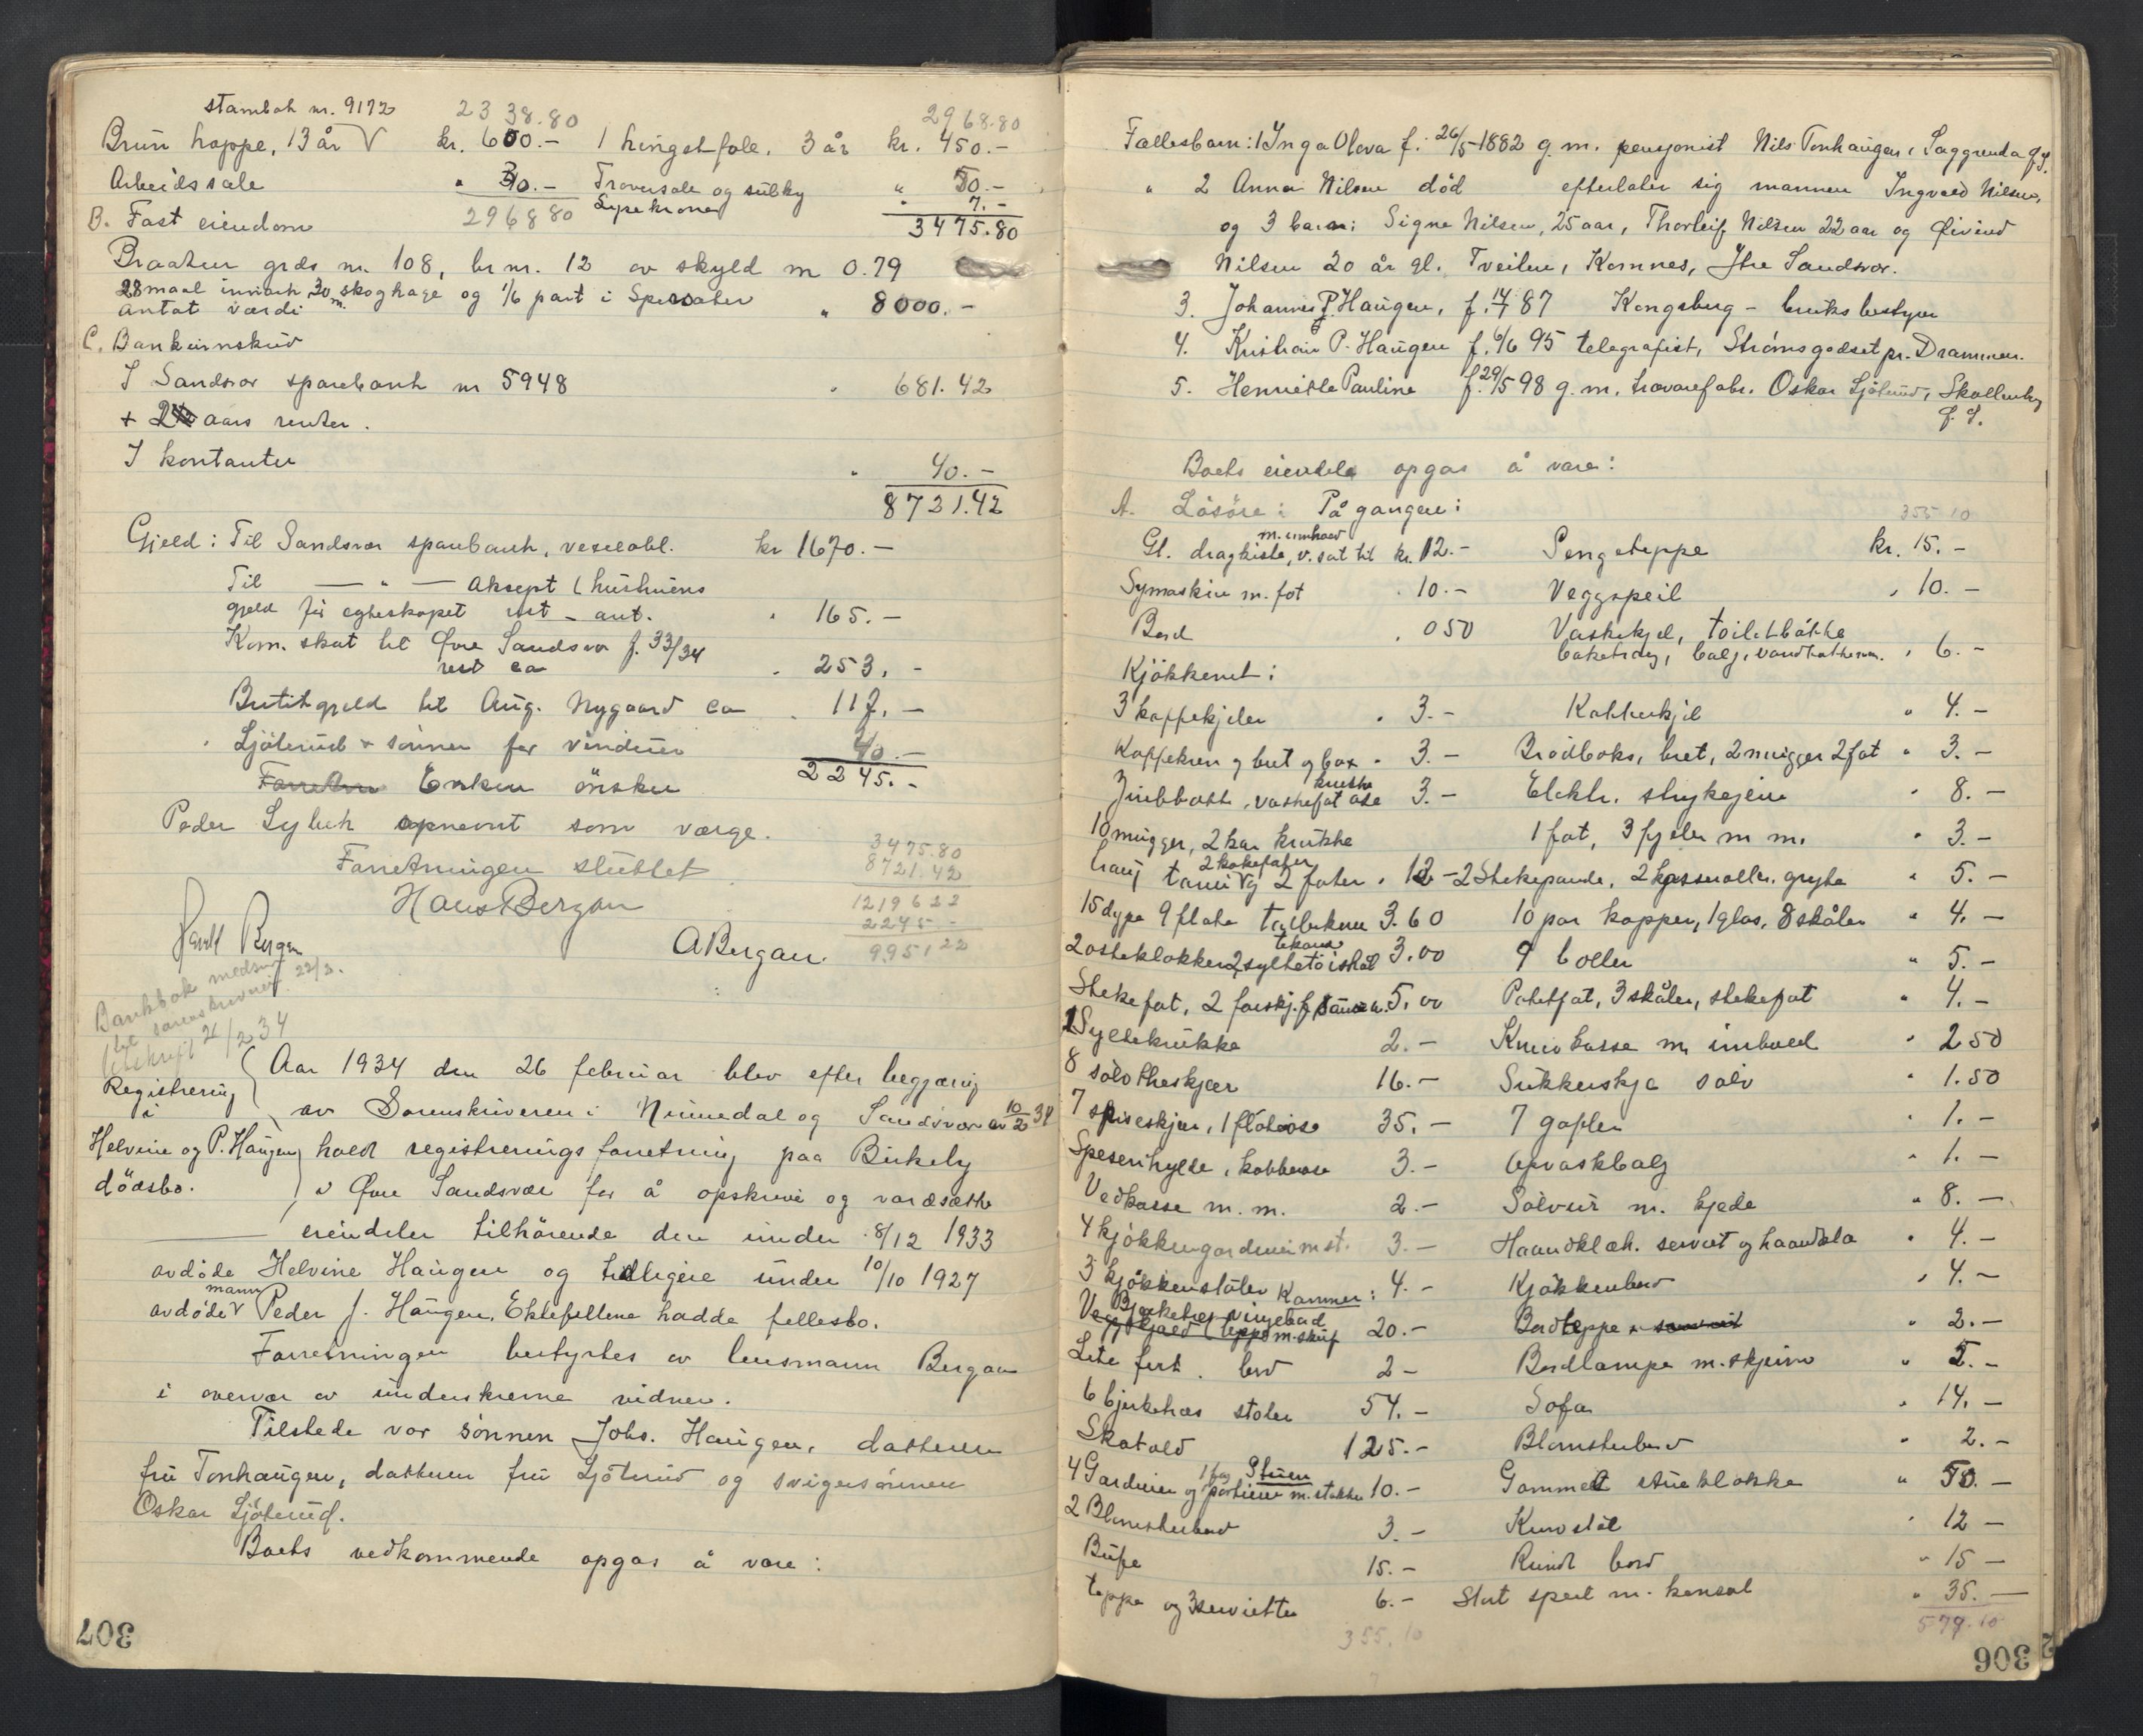 stambok nr. 9172
2338.80 2968.80
Brun hoppe, 13 år V kr. 600.- 1 hingstfole, 3 år kr. 450.-
Arbeidssale " 30.- Traversale og sulky " 50.-
2968 80 " 7.-
B. Fast eiendom 3475.80
Braaten grds nr. 108, br nr. 12 av skyld m 0.79
28 maal innmark, 30 m. skoghage og 1/6 part i
antat værdi " 8000.-
C. Bankinnskud
I Sandsvær sparebank nr 5948 " 681.42
+ aars renter.
I kontanter " 40.-
8721.42
Gjeld: Til Sandsvær sparebank, vexelobl. kr 1670.-
Til — " — Aksept (hustruens
gjeld før egteskapet rest - ant. " 165.-
Kom. skat til Øvre Sandsvær f. 33/34
rest ca " 253.-
Butikgjeld til Aug. Nygaard ca " 117.-
" Ljöterud & sönner for vinduer 40.-
2245.-
Enken önsker
Peder Lyluk opnevnt som værge.
Forretningen sluttet
Hans Bergan
Harald Bergan
A Bergan.
3475.80
8721.42
12196 22
2245 -
9951 22
Bankbok medsendt
til sorenskriveren 22/3.
Utskrift 26/2 34
Registrering Aar 1934 den 26 februar blev efter begjæring
i av Sorenskriveren i Numedal og Sandsvær av 10/2 34
Helvine og P. Haugens holdt registreringsforretning paa Birkely
dödsbo. i Øvre Sandsvær for å opskrive og værdsætte
eiendeler tilhörende den under 8/12 1933
avdöde Helvine Haugen og tidligere under 10/10 1927
mann
avdöde V Peder J. Haugen. Ektefellene hadde fellesbo.
Forretningen bestyrtes av lensmann Bergan
i overvær av underskrevne vidner.
Tilstede var sönnen Johs. Haugen, datteren
fru Tonhaugen, datteren fru Ljöterud og svigersönnen
Oskar Ljöterud.
Boets vedkommende opgas å være:
307
Fællesbarn: 1 Inga Olava f. 26/5-1882 g. m. pensjonist Nils Tonhaugen, Saggrenda f.g.
" 2 Anna Nilsen död efterlater sig mannen Ingvald Nilsen,
og 3 barn: Signe Nilsen, 25 aar, Thorleif Nilsen 22 aar og Øivind
Nilsen 20 år gl. Tveiten, Komnes, Ytre Sandsvær.
3. Johannes P. Haugen, f. 14/7 87 Kongsberg - bruksbestyrer
4. Kristian P. Haugen f. 6/6 95 telegrafist, Strömsgodset pr. Drammen.
5. Henriette Pauline f. 29/5 98 g. m. trævarefabr. Oskar Ljöterud, Skollenborg
Boets eiendele opgas å være:
A. Lösöre: På gangen: 355 10
m. innhold
Gl. dragkiste, v. sat til kr. 12.- Sengeteppe kr. 15.-
Symaskin m. fot " 10.- Veggspeil " 10.-
Bord " 0 50 Vaskekjel, toilettbötte
balj, vandbötte " 6.-
Kjökkenet:
3 kaffekjeler " 3.- Kobberkjel " 4.-
Kaffekvern og bret og box " 3.- Brödboks, bret, 2 mugger 2 fat " 3.-
krukke
Zinkbötte, vaskefat öse 3.- Elektr. strykejern " 8.-
10 mugger, 2 par krukke 1 fat, 3 fjeler m m. " 3.-
2 kakefater
2 fater " 12 - 2 Stekepande, 2 kasseroller, gryte " 5.-
15 dype 9 flate tallerkner 3.60 10 par kopper, 1 glas, 8 skåler " 4.-
tekande
2 osteklokker, 2 syltetöiskål 3.00 9 boller " 5.-
Stekefat, 2 5.00 Potetfat, 3 skåler, stekefat " 4.-
1 Syltekrukke 2.- Knivkasse m innhold " 2 50
8 sölvtheskjær 16.- Sukkerskje sölv " 1.50
7 spiseskjær, 1 flöteöse 35.- 7 gafler " 1.-
Speserihylle, kobberöse 3.- Opvaskbalg " 1.-
Vedkasse m. m. 2.- Sölvur m. kjede " 8.-
4 kjökkengardiner m st. 3.- Haandklæh. serviet og haandklæ " 4.-
3 kjökkenstoler 4.- Kjökkenbord " 4.-
Kammer:
Bjerketres vingebord
m. skuf 20.- Bordteppe " 2.-
Lite firk. bord 2- Bordlampe m. skjerm " 5.-
6 bjerketres stoler 54.- Sofa " 14.-
Skatold 125.- Blomsterbord " 2.-
1 fag Stuen
4 Gardiner og portierer m. stokke 10.- Gammel stueklokke " 50.-
2 Blomsterbord 3.- Kurvstol " 12 -
Bufe 15.- Rundt bord " 15 -
teppe og 3 servietter 6.- Stort speil m. konsol " 35.-
355.10 579.10
306